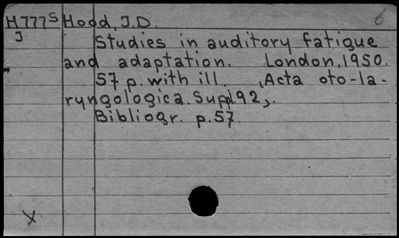 H777S Hood, J.D. 6
J Studies in auditory fatigue
and adaptation. London, 1950.
57 p. with ill. (Acta oto-la-
ryngologica. Suppl. 92).
Bibliogr. p. 57.
X